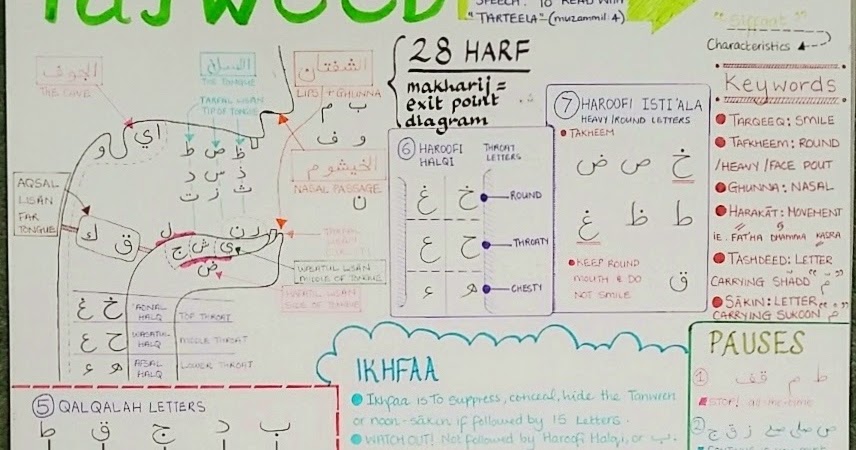 TAJWEED
SPEECH. TO READ WITH
"TARTEELA" - (muzammil:4)
28 HARF
makharij =
exit point
diagram
الجوف
THE CAVE
اللسان
THE TONGUE
الشفتان
LIPS / + GHUNNA
ب م
و ف
الخيشوم
NASAL PASSAGE
ن
TARFAL LISAN
TIP OF TONGUE
ط ص ظ
د س ذ
ت ز ث
اي
و
AQSAL
LISAN
FAR
TONGUE
ق ك
ل
ر ن
ج ش ي
ض
WASATUL LISAN
MIDDLE OF TONGUE
HAFATUL LISAN
SIDE OF TONGUE
غ خ
'ADNAL HALQ
TOP THROAT
ع ح
WASATUL HALQ
MIDDLE THROAT
ء ه
AQSAL HALQ
LOWER THROAT
⑥ HAROOFI
HALQI
THROAT
LETTERS
غ خ
ROUND
ع ح
THROATY
ء ه
CHESTY
⑦ HAROOFI ISTI'ALA
HEAVY/ROUND LETTERS
TAKHEEM
خ ص ض
ط ظ غ
ق
KEEP ROUND
MOUTH & DO
NOT SMILE
"Siffaat"
Characteristics
Keywords
TARQEEQ: SMILE
TAFKHEEM: ROUND
/HEAVY/FACE POUT
GHUNNA: NASAL
HARAKĀT: MOVEMENT
ie. FATHA DHAMMA KASRA
TASHDEED: LETTER
CARRYING SHADD
SĀKIN: LETTER
CARRYING SUKOON
⑤ QALQALAH LETTERS
ب د ج ق ط
IKHFAA
Ikhfaa is to suppress, conceal, hide the Tanween
or noon-sākin if followed by 15 letters.
WATCH OUT! Not followed by Haroofi Halqi, or ب.
PAUSES
① ط م قف
STOP!
②